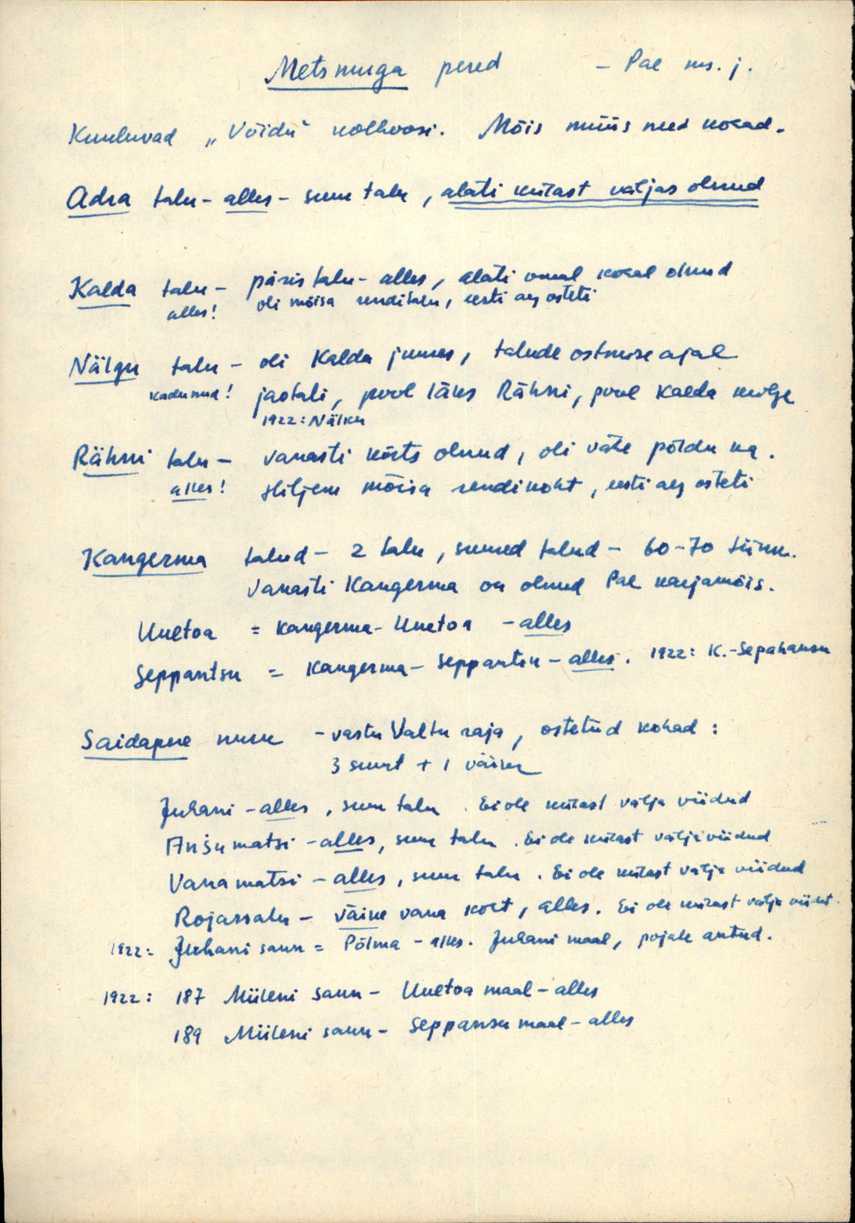 Metsmuga pered – Pae ms. j.
Kuuluvad „Võidu" kolhoosi. Mõis müüs need kohad.
Adra talu – alles – suur talu, alati külast väljas olnud
Kalda talu – päris talu – alles, alati omal kohal olnud
alles! oli mõisa renditalu, eesti aeg osteti
Nälgu talu – oli Kalda juures, talude ostmise ajal
kadunud! jaotati, pool läks Rähni, pool Kalda külge
1922: Nälku
Rähni talu – vanasti kõrts olnud, oli vähe põldu ka.
alles! Hiljem mõisa rendikoht, eesti aeg osteti
Kangerma talud – 2 talu, suured talud – 60–70 tiinu.
Vanasti Kangerma on olnud Pae karjamõis.
Uuetoa = Kangerma-Uuetoa – alles
Seppantsu = Kangerma-Seppantsu – alles. 1922: K.-Sepahansu
Saidapere nurk – vastu Valtu raja, ostetud kohad:
3 suurt + 1 väike
Juhani – alles, suur talu. Ei ole külast välja viidud
Anšumatsi – alles, suur talu. Ei ole külast välja viidud
Vanamatsi – alles, suur talu. Ei ole külast välja viidud
Rojassalu – väike vana koht, alles. Ei ole külast välja viidud.
1922: Juhani saun = Põlma – alles. Juhani maal, pojale antud.
1922: 187 Miileni saun – Uuetoa maal – alles
189 Miileni saun – Seppansu maal – alles